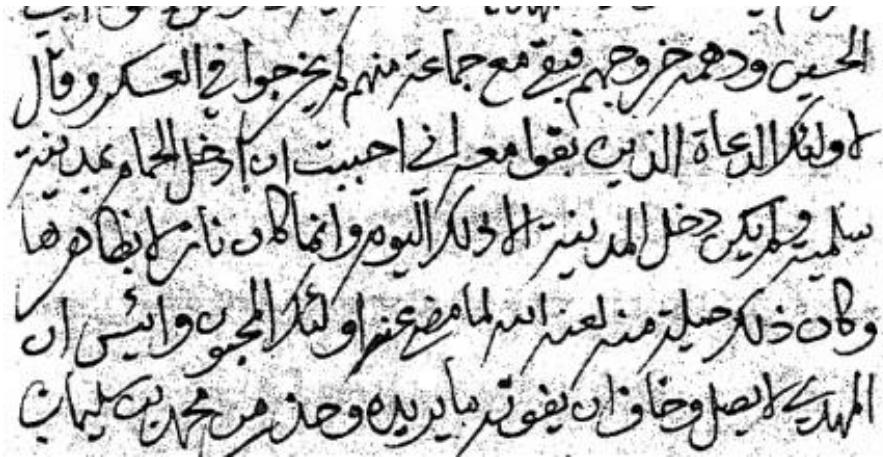 الحسين ودهمه خروجهم فبقي مع جماعة منهم لم يخرجوا في العسكر وقال
لاولئك الدعاة الذين بقوا معه اني احببت ان ادخل الحمام بمدينة
سلمية ولم يكن دخل المدينة الا ذلك اليوم وانما كان نازلا بظاهرها
وكان ذلك حيلة منه لعنه الله لما مضى عنه اولئك المحبون وايس ان
المهدي لا يصل وخاف ان يفوته ما يريده وحذر من محمد بن سليمان